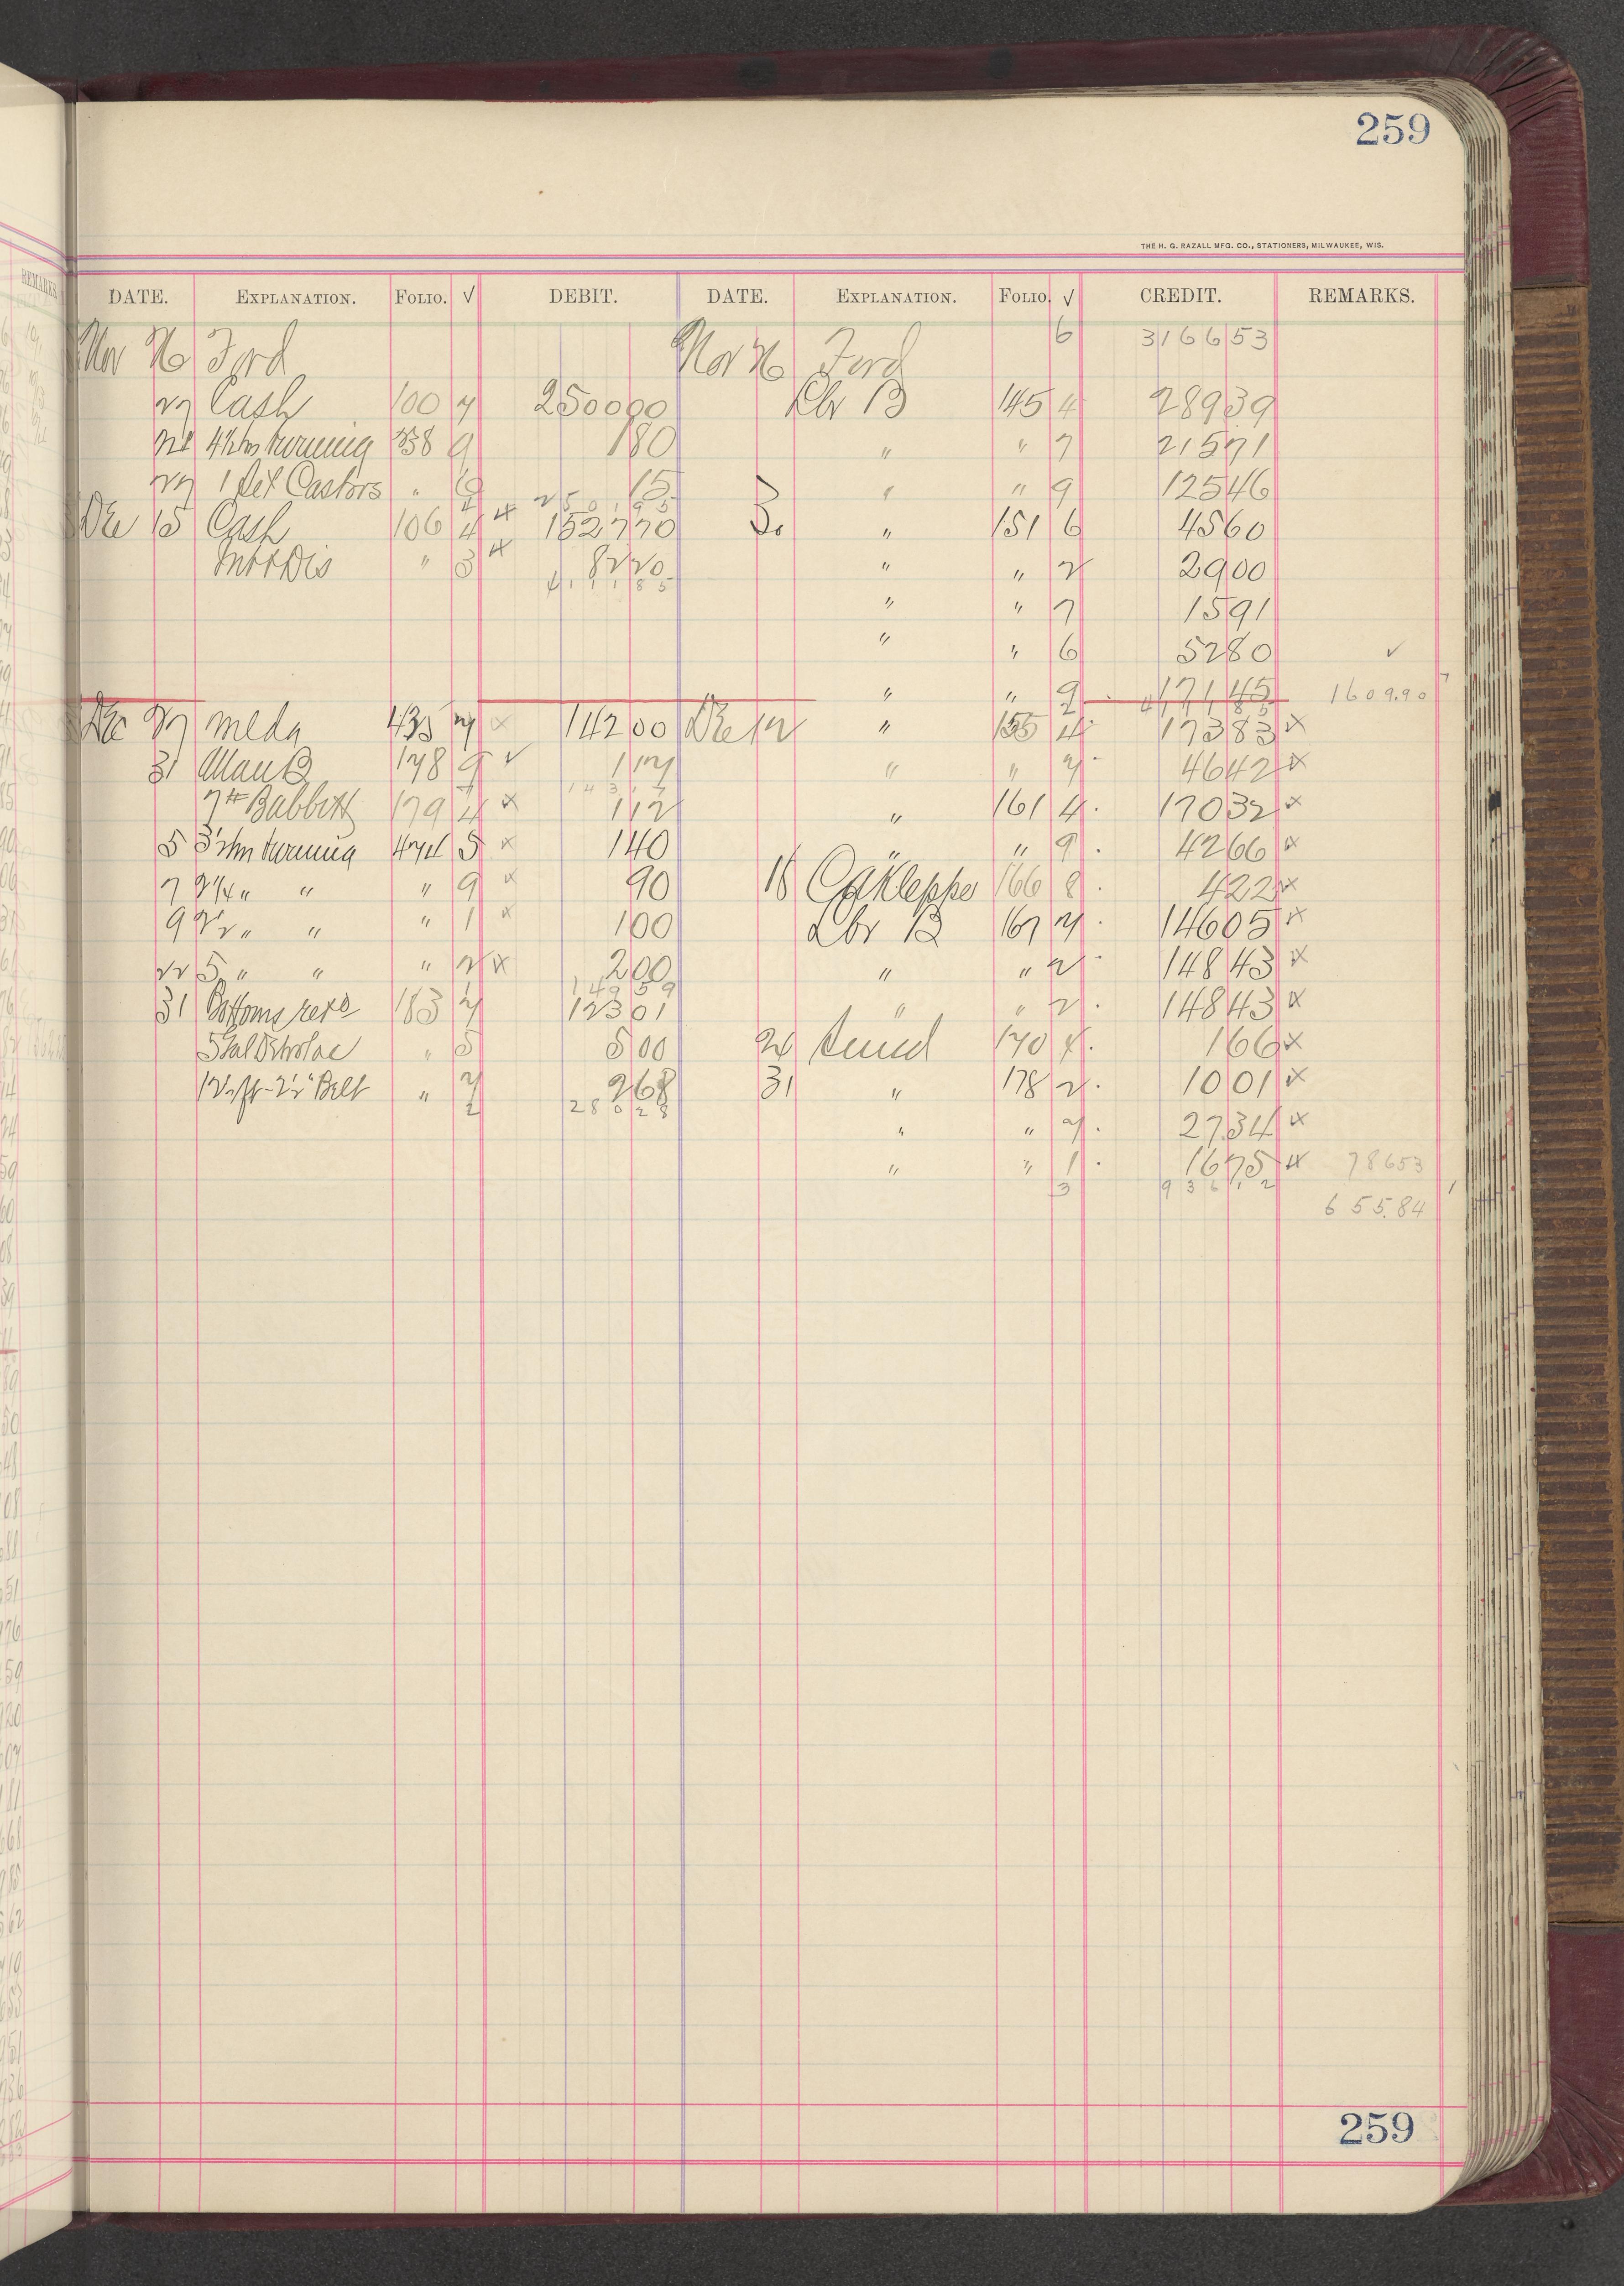 259
THE H. G. RAZALL MFG. CO., STATIONERS, MILWAUKEE, WIS.
REMARKS
DATE. EXPLANATION. FOLIO. √ DEBIT. DATE. EXPLANATION. FOLIO. √ CREDIT. REMARKS.
Nov 26 Ford Nov 26 Ford 6 316653
27 Cash 100 7 250000 Lbr B 145 4 28939
21 4½ hrs turning 338 9 180 " " 7 21571
27 1 Set Castors " 6 15 " " 9 12546
250195
Dec 15 Cash 106 4 152770 30 " 151 6 4560
Int & Dis " 3 8220 " " 2 2900
411185
" " 7 1591
" " 6 5280 ✓
" " 9 17145 1609.90
411185
Dec 27 Mcla 435 7 14200 Dec 12 " 155 4 17383 x
31 Man B 178 9 ✓ 117 " " 7 4642 x
14317
7# Babbitt 179 4 x 112 " 161 4 17032 x
5 3½ hrs turning 474 5 x 140 " " 9 4266 x
7 2¼ " " " 9 x 90 18 CA Kleppe 166 8 422 x
9 2½ " " " 1 x 100 Lbr B 167 7 14605 x
22 5 " " " 2 x 200 " " 2 14843 x
14959
31 Bottoms retd 183 7 12301 " " 2 14843 x
5 Gal " 5 500 24 170 4 166 x
12½ ft - 2½" Belt " 7 268 31 " 178 2 1001 x
2 28028
" " 7 2734 x
" " 1 1675 x 78653
3 93612
655.84
259